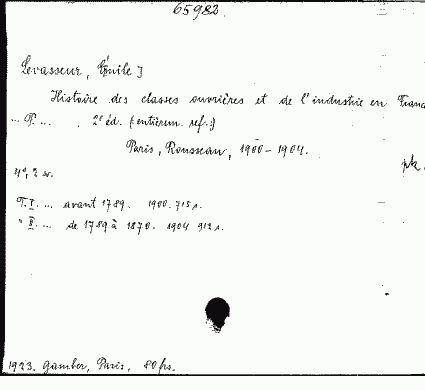 65982.
Levasseur, Émile]
Histoire des classes ouvrières et de l'industrie en Franc
... T. ... . 2e éd. (entièrem. ref.:)
Paris, Rousseau, 1900-1904.
4°, 2 w.
T. I. ... avant 1789. 1900. 715 s.
" II. ... de 1789 à 1870. 1904 912 s.
1923. Gamber, Paris, 80 frs.